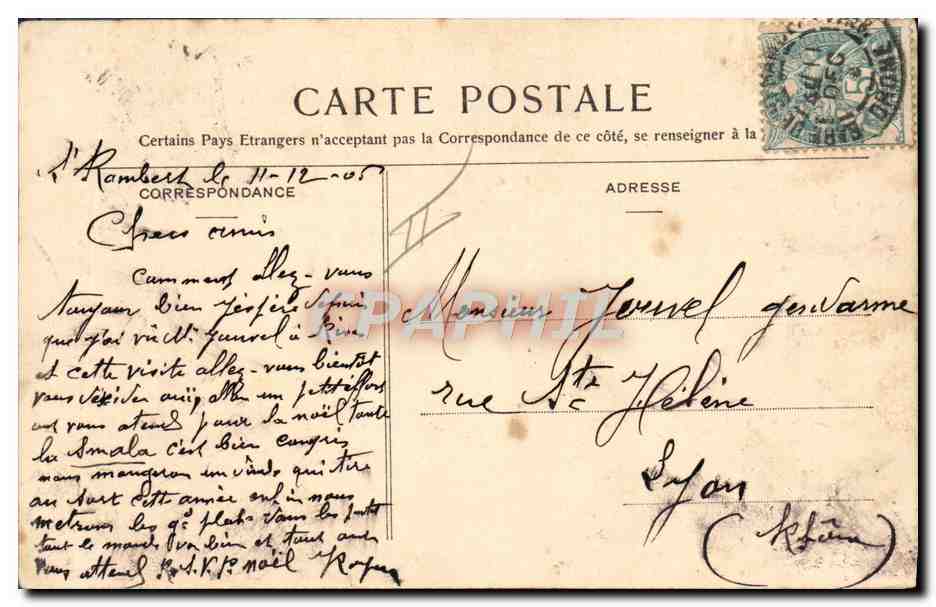 CARTE POSTALE
Certains Pays Etrangers n'acceptant pas la Correspondance de ce côté, se renseigner à la
St Rambert le 11-12-05
CORRESPONDANCE
Chers amis
Comment allez-vous
toujour bien j'espère depuis
que j'ai vu Mr Jouvel à
et cette visite allez-vous bientôt
vous décider un petit effort
on vous atend pour la noël toute
la Smala c'est bien compris
nous mangeron un dinde qui tire
au sort cette année enfin nous
metrons les gd plats dans les petit
tout le monde va bien et tout
vous attend R.S.V.P. noël
ADRESSE
Monsieur Jouvel gendarme
rue Ste Hélène
Lyon
(Rhône)
II
5
CPAPHIL